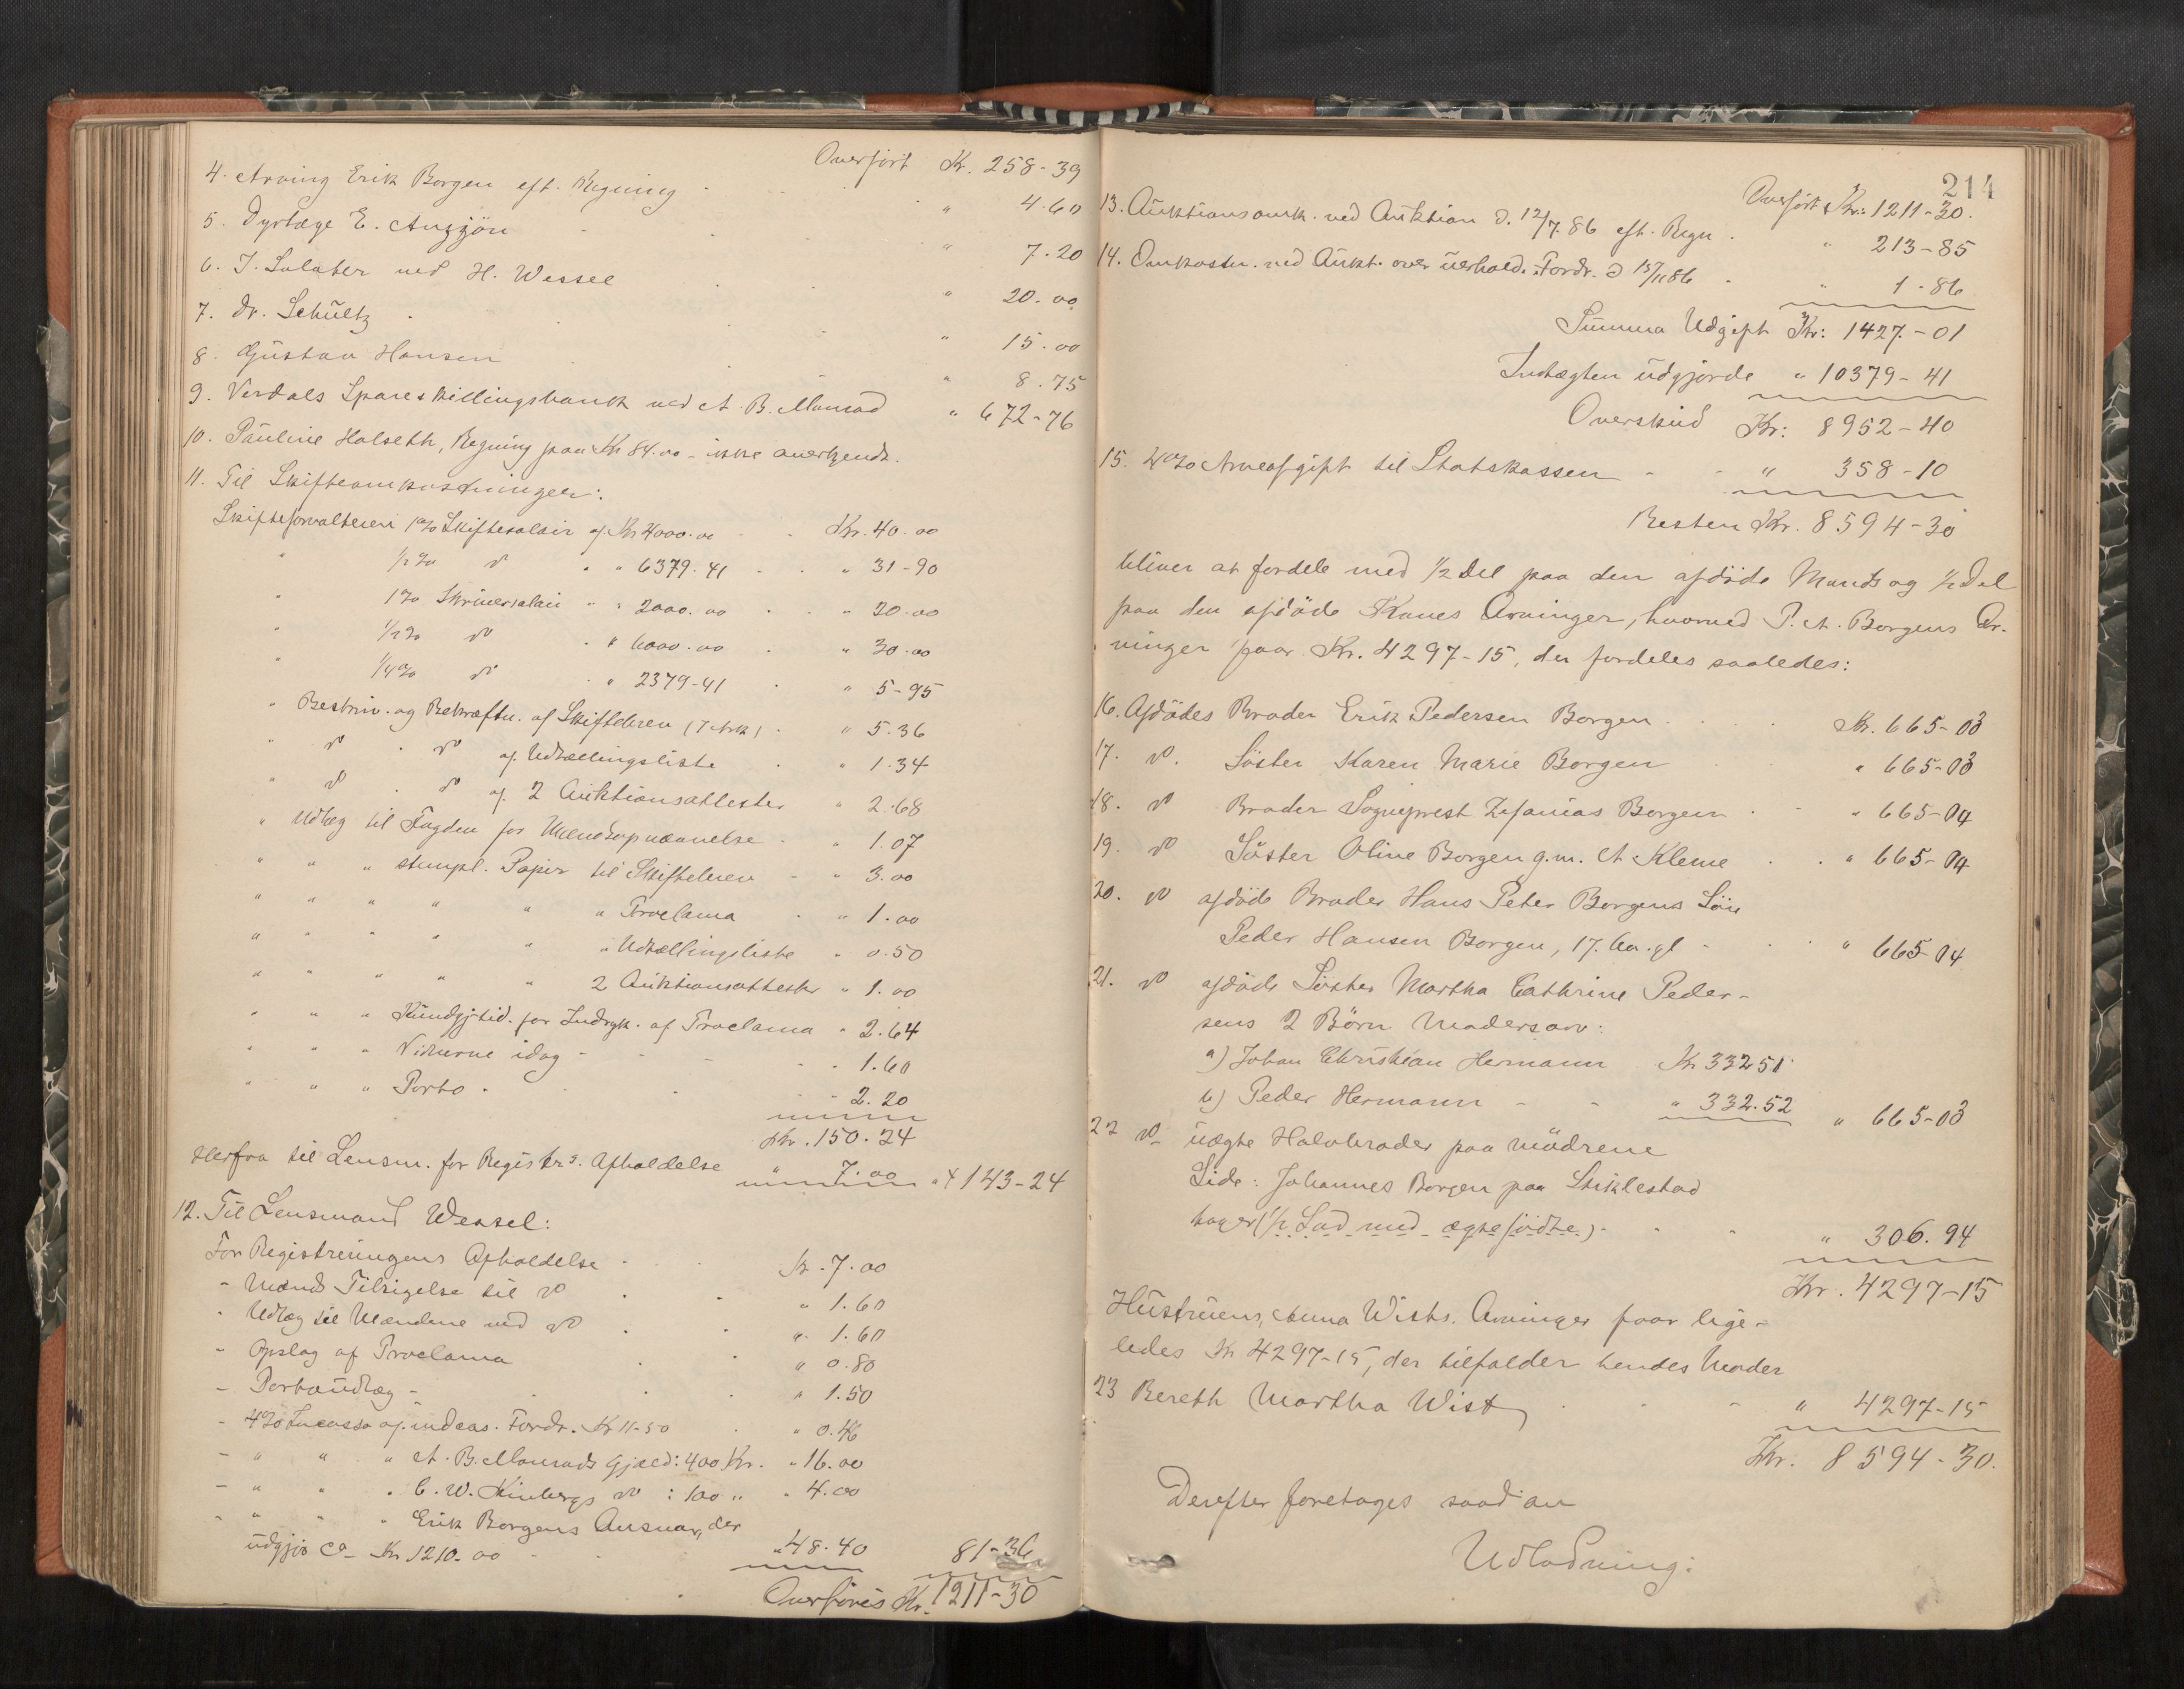 Overført Kr. 258-39
4. Arving Erik Borgen eft. Regning " 4.60
5. Dyrlæge E. " 7.20
6. J. Salater ved H. Wessel " 20.00
7. Dr. Schültz " 15.00
8. Gustav Hansen " 8.75
9. Verdals Spareskillingsbank ved A. B. Monrad " 672-76
10. Pauline Halseth, Regning paa Kr 84.00 - ikke anerkjendt.
11. Til Skifteomkostninger:
Skifteforvalteren 1% Skiftesalair af Kr 4000.00 Kr. 40.00
" ½% do " " 6379-41 " 31-90
" 1% Skriversalair " " 2000.00 " 20.00
" ½% do " 6000.00 " 30.00
" ¼% do " 2379-41 " 5-95
" Beskriv. og Bekræftn. af Skiftebrev (7 Ark) " 5.36
" do " do af Udtællingsliste " 1.34
" do " do af 2 Auktionsattester " 2.68
" Udlæg til Fogden for Mændsopnævnelse " 1.07
" " " stempl. Papir til Skiftebrev " 3.00
" " " " " " Proclama " 1.00
" " " " " " Udtællingsliste " 0.50
" " " " " 2 Auktionsattester " 1.00
" " " Kundgj-tid. for Indryk. af Proclama " 2.64
" " " Vidnerne idag " 1.60
" " " Porto " 2.20
Kr. 150.24
Herfra til Lensm. for Registrs. Afholdelse " 7.00 " 143-24
12. Til Lensmand Wessel:
For Registreringens Afholdelse Kr. 7.00
- Mænds Tilsigelse til do " 1.60
- Udlæg til Mændene ved do " 1.60
- Opslag af Proclama " 0.80
- Portoudlæg " 1.50
- 4% Incasso af indcas. Fordr. Kr 11-50 " 0.46
- " " " A. B. Monrads Gjæld: 400 Kr. " 16.00
- " " " C. W. Kinbergs do : 100 " " 4.00
- " " " Erik Borgens Ansvar, der
udgjør Ca Kr 1210.00 " 48.40 81-36
Overføres Kr. 1211-30
214
Overført Kr: 1211-30.
13. Auktionsomk. ved Auktion d. 12/7 86 eft. Regn. " 213-85
14. Omkostn. ved Aukt. over uerhold. Fordr. d 15/11 86 " 1-86
Summa Udgift Kr: 1427-01
Indtægten udgjorde " 10379-41
Overskud Kr: 8952-40
15. 4% Arveafgift til Statskassen " 358-10
Resten Kr. 8594-30
bliver at fordele med ½ Del paa den afdøde Mands og ½ Del
paa den afdøde Kones Arvinger, hvorved P. A. Borgens Ar-
vinger faar Kr. 4297-15, der fordeles saaledes:
16. Afdødes Broder Erik Pedersen Borgen Kr. 665-03
17. do. Søster Karen Marie Borgen " 665-03
18. do Broder Sogneprest Zefanias Borgen " 665-04
19. do Søster Oline Borgen g.m. A Klewe " 665-04
20. do afdøde Broder Hans Peter Borgens Søn
Peder Hansen Borgen, 17. Aa. gl " 665-04
21. do afdøde Søster Martha Cathrine Peder-
sens 2 Børn Modersarv:
a) Johan Christian Hermann Kr 332 51
b) Peder Hermann " 332.52 " 665-03
22 do uægte Halvbroder paa mødrene
Side: Johannes Borgen paa Stiklestad
tager (½ Lod med ægtefødte) " 306.94
Kr. 4297-15
Hustruens, Anna Wists. Arvinger faar lige-
ledes Kr 4297-15, der tilfalder hendes Moder
23 Bereth Martha Wist " 4297-15
Kr. 8594-30.
Derefter foretages saadan
Udlodning: